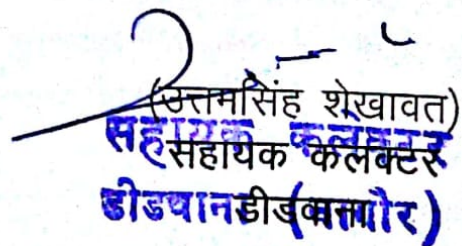 (उत्तमसिंह शेखावत)
सहायक कलेक्टर
सहायक कलेक्टर
डीडवाना (नागौर)
डीडवाना